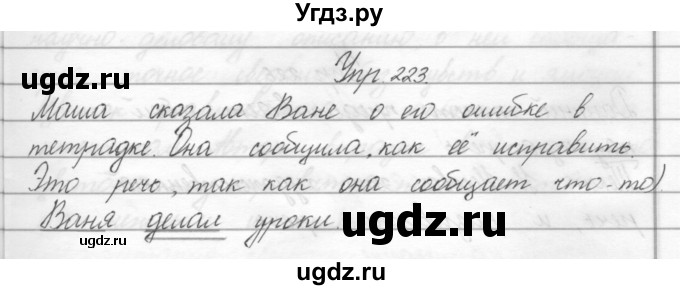 Угдз.ру
Упр. 223
Маша сказала Ване о его ошибке в
тетрадке. Она сообщила, как её исправить.
Это речь, так как она сообщает что-то).
Ваня делал уроки.
ugdz.ru
ugdz.ru
ugdz.ru
ugdz.ru
ugdz.ru
ugdz.ru
ugdz.ru